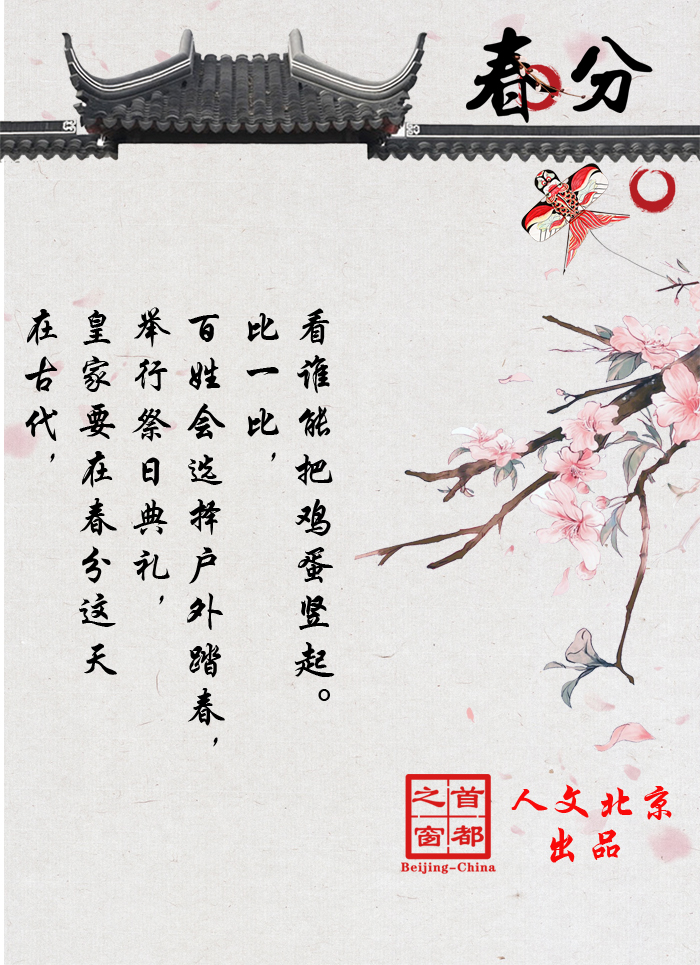 春分
在古代，
皇家要在春分这天
举行祭日典礼，
百姓会选择户外踏春，
比一比，
看谁能把鸡蛋竖起。
首都之窗
Beijing-China
人文北京
出品